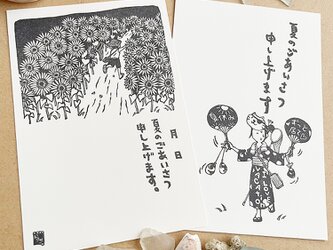 月　日
夏のごあいさつ
申し上げます。
夏のごあいさつ
申し上げます